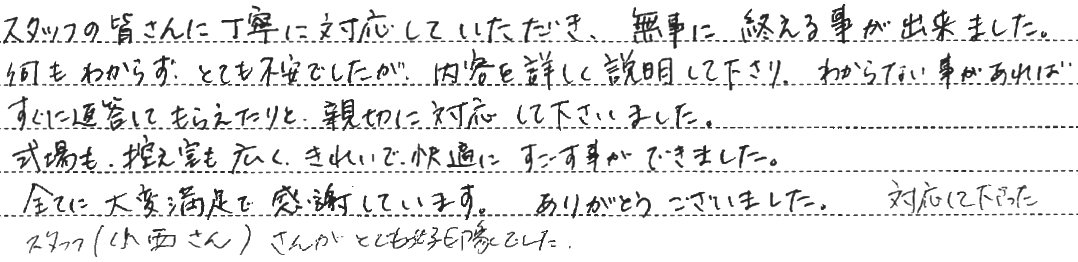 スタッフの皆さんに丁寧に対応していただき、無事に終える事が出来ました。
何もわからず、とても不安でしたが、内容を詳しく説明して下さり、わからない事があれば
すぐに返答してもらえたりと、親切に対応して下さいました。
式場も、控え室も広く、きれいで、快適にすごす事ができました。
全てに大変満足で感謝しています。ありがとうございました。対応して下さった
スタッフ(小西さん)さんがとても好印象でした。